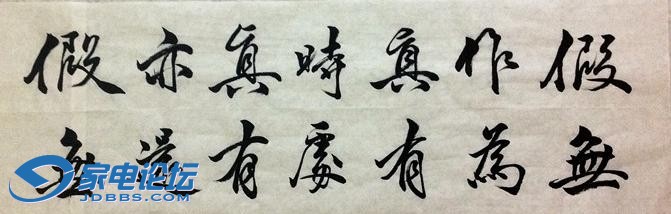 假作真時真亦假
無為有處有還無
家电论坛
JDBBS.COM